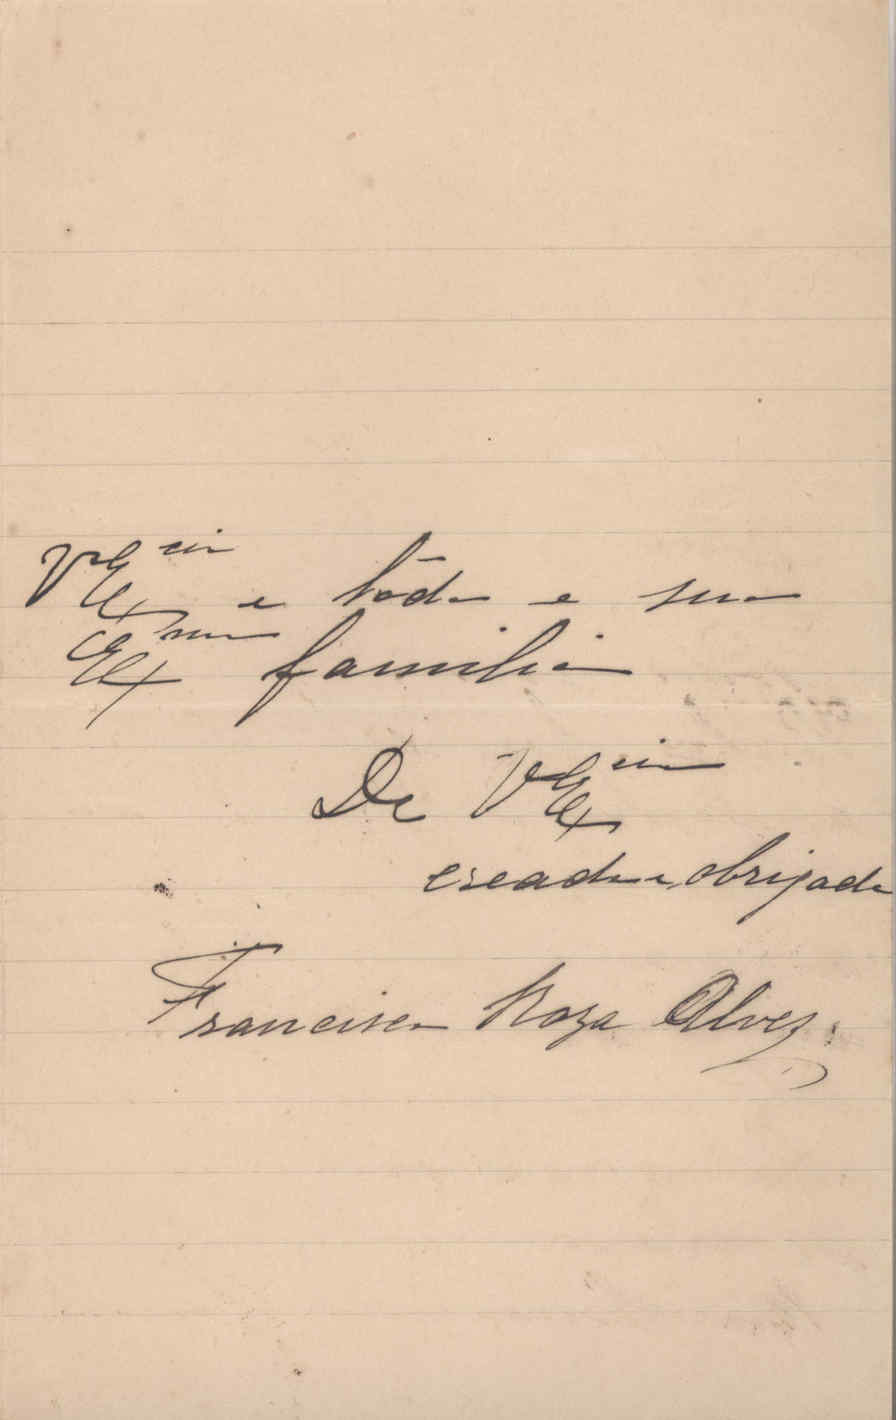 V Ex cia e tôda a sua
Ex ma familia
De V Ex cia
creada e obrigada
Francisca Roza Alves